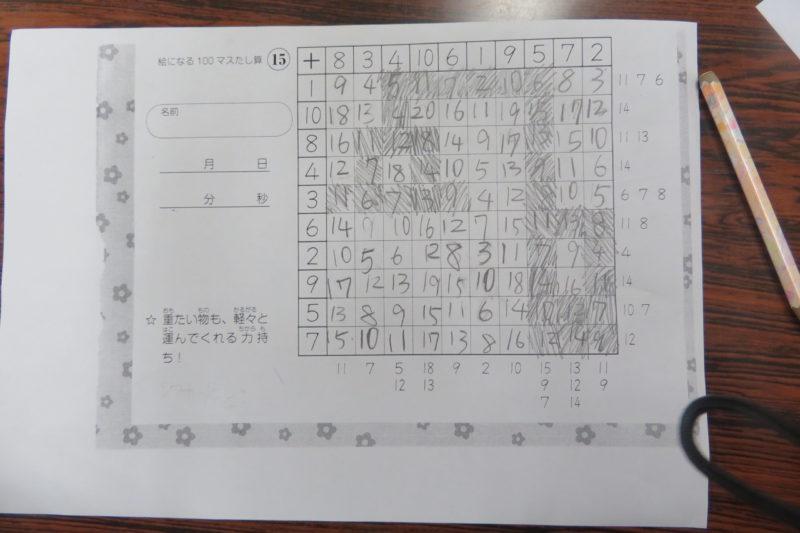 絵になる100マスたし算 15
名前
月 日
分 秒
☆ 重たい物も、軽々と
運んでくれる力持
ち！
おも もの かるがる
はこ ちから も
+ 8 3 4 10 6 1 9 5 7 2
1 9 4 5 11 7 2 10 6 8 3 11 7 6
10 18 13 14 20 16 11 19 15 17 12 14
8 16 11 12 18 14 9 17 13 15 10 11 13
4 12 7 18 14 10 5 13 9 11 6 14
3 11 6 7 13 9 4 12 10 5 6 7 8
6 14 9 10 16 12 7 15 11 13 8 11 8
2 10 5 6 12 8 3 11 7 9 4 4
9 17 12 13 19 15 10 18 14 16 11 14
5 13 8 9 15 11 6 14 10 12 7 10 7
7 15 10 11 17 13 8 16 12 14 9 12
11 7 5 18 9 2 10 15 13 11
12 13 9 12 9
7 14